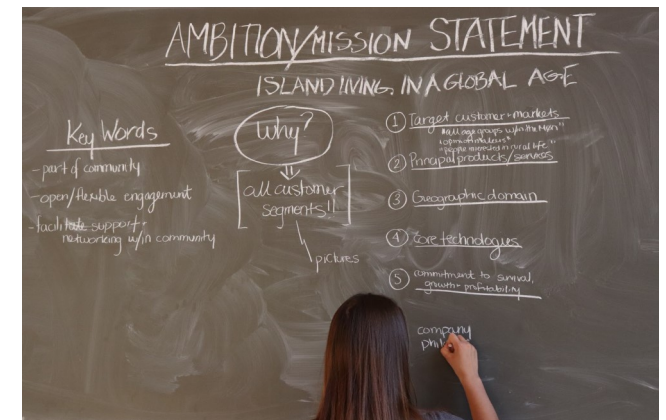 AMBITION/MISSION STATEMENT
ISLAND LIVING, IN A GLOBAL AGE
Key Words
- part of community
- open/flexible engagement
- facilitate support +
networking w/in community
Why?
all customer
segments!!
pictures
1 Target customer + markets
"all age groups w/in the Møn"
"opinion makers"
"people interested in rural life"
2 Principal products/services
3 Geographic domain
4 Core technologies
5 commitment to survival,
growth + profitability
company
phil